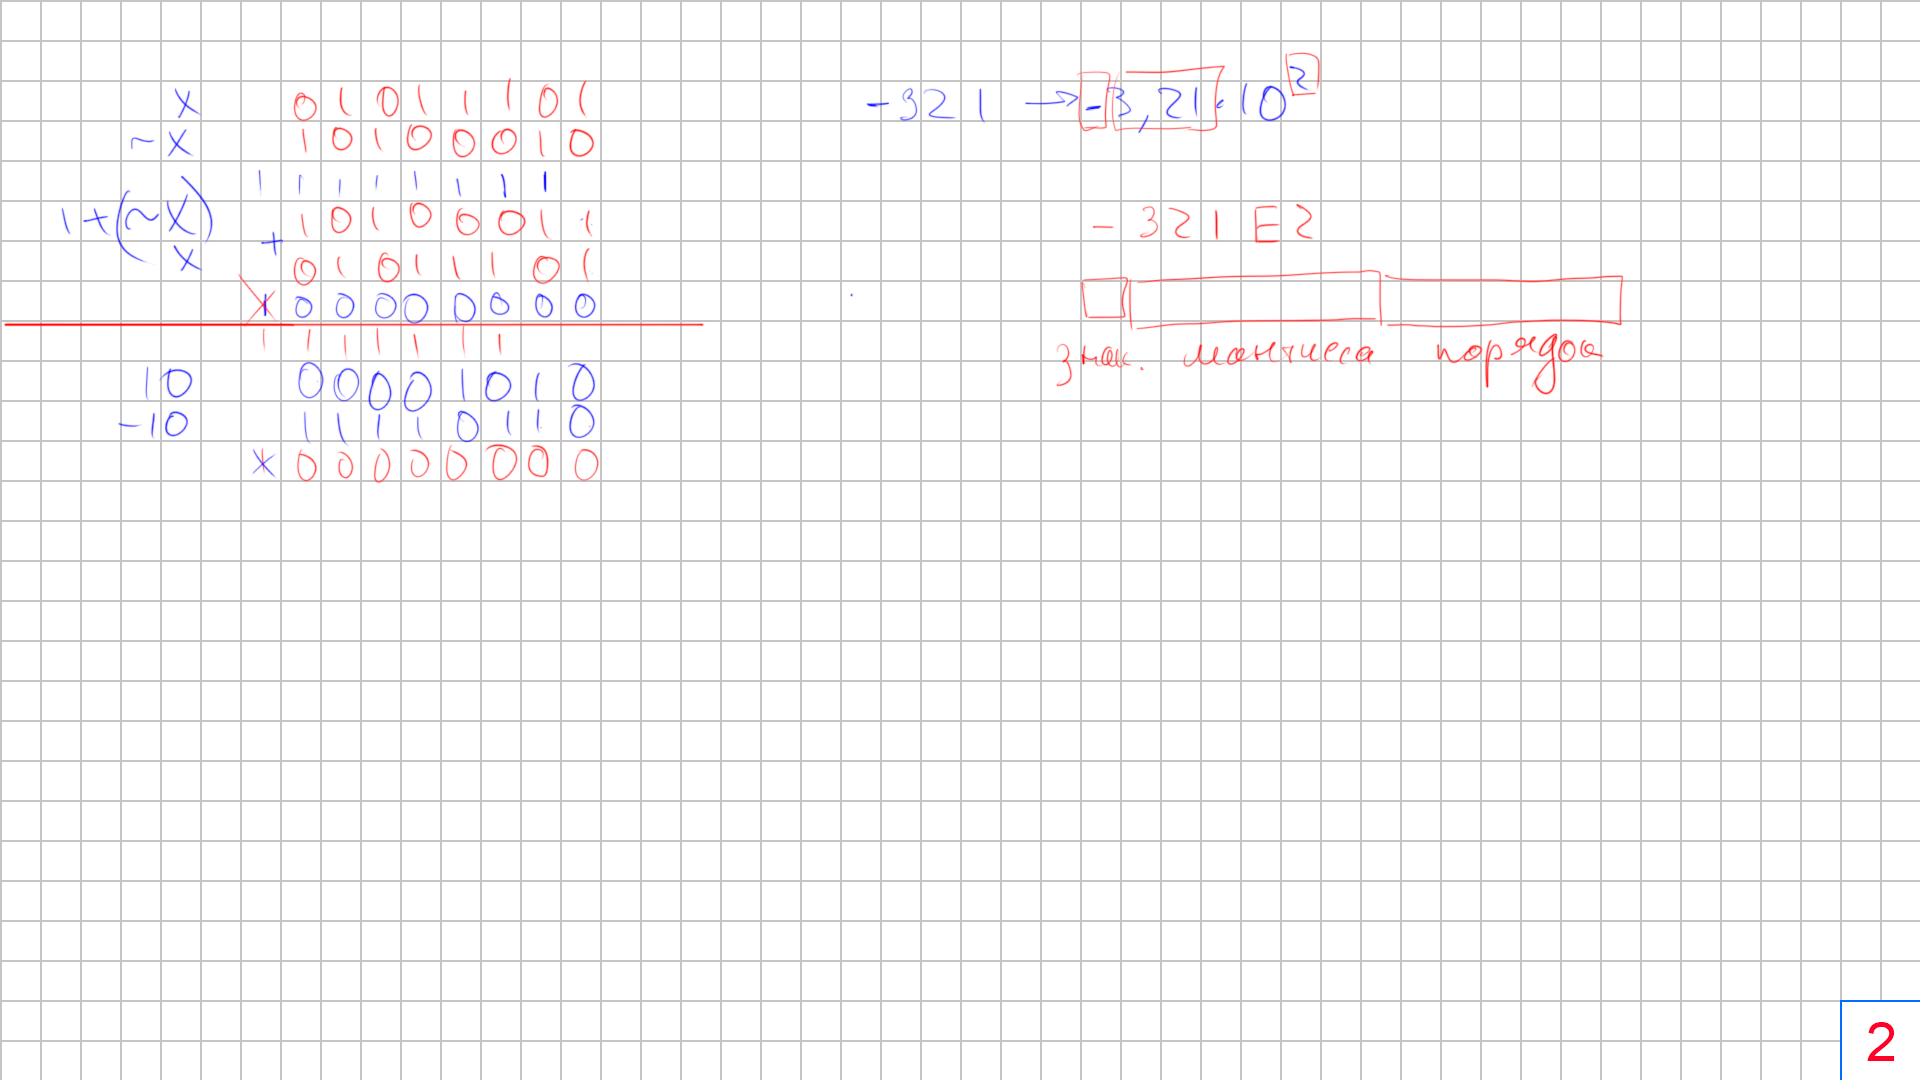 x 0 1 0 1 1 1 0 1
~x 1 0 1 0 0 0 1 0
1 1 1 1 1 1 1 1
1+(~x) 1 0 1 0 0 0 1 1
+
x 0 1 0 1 1 1 0 1
0 0 0 0 0 0 0 0
1 1 1 1 1 1 1
10 0 0 0 0 1 0 1 0
-10 1 1 1 1 0 1 1 0
x 0 0 0 0 0 0 0 0
-321 → -3,21·10²
- 321 E2
знак. мантисса порядок
2